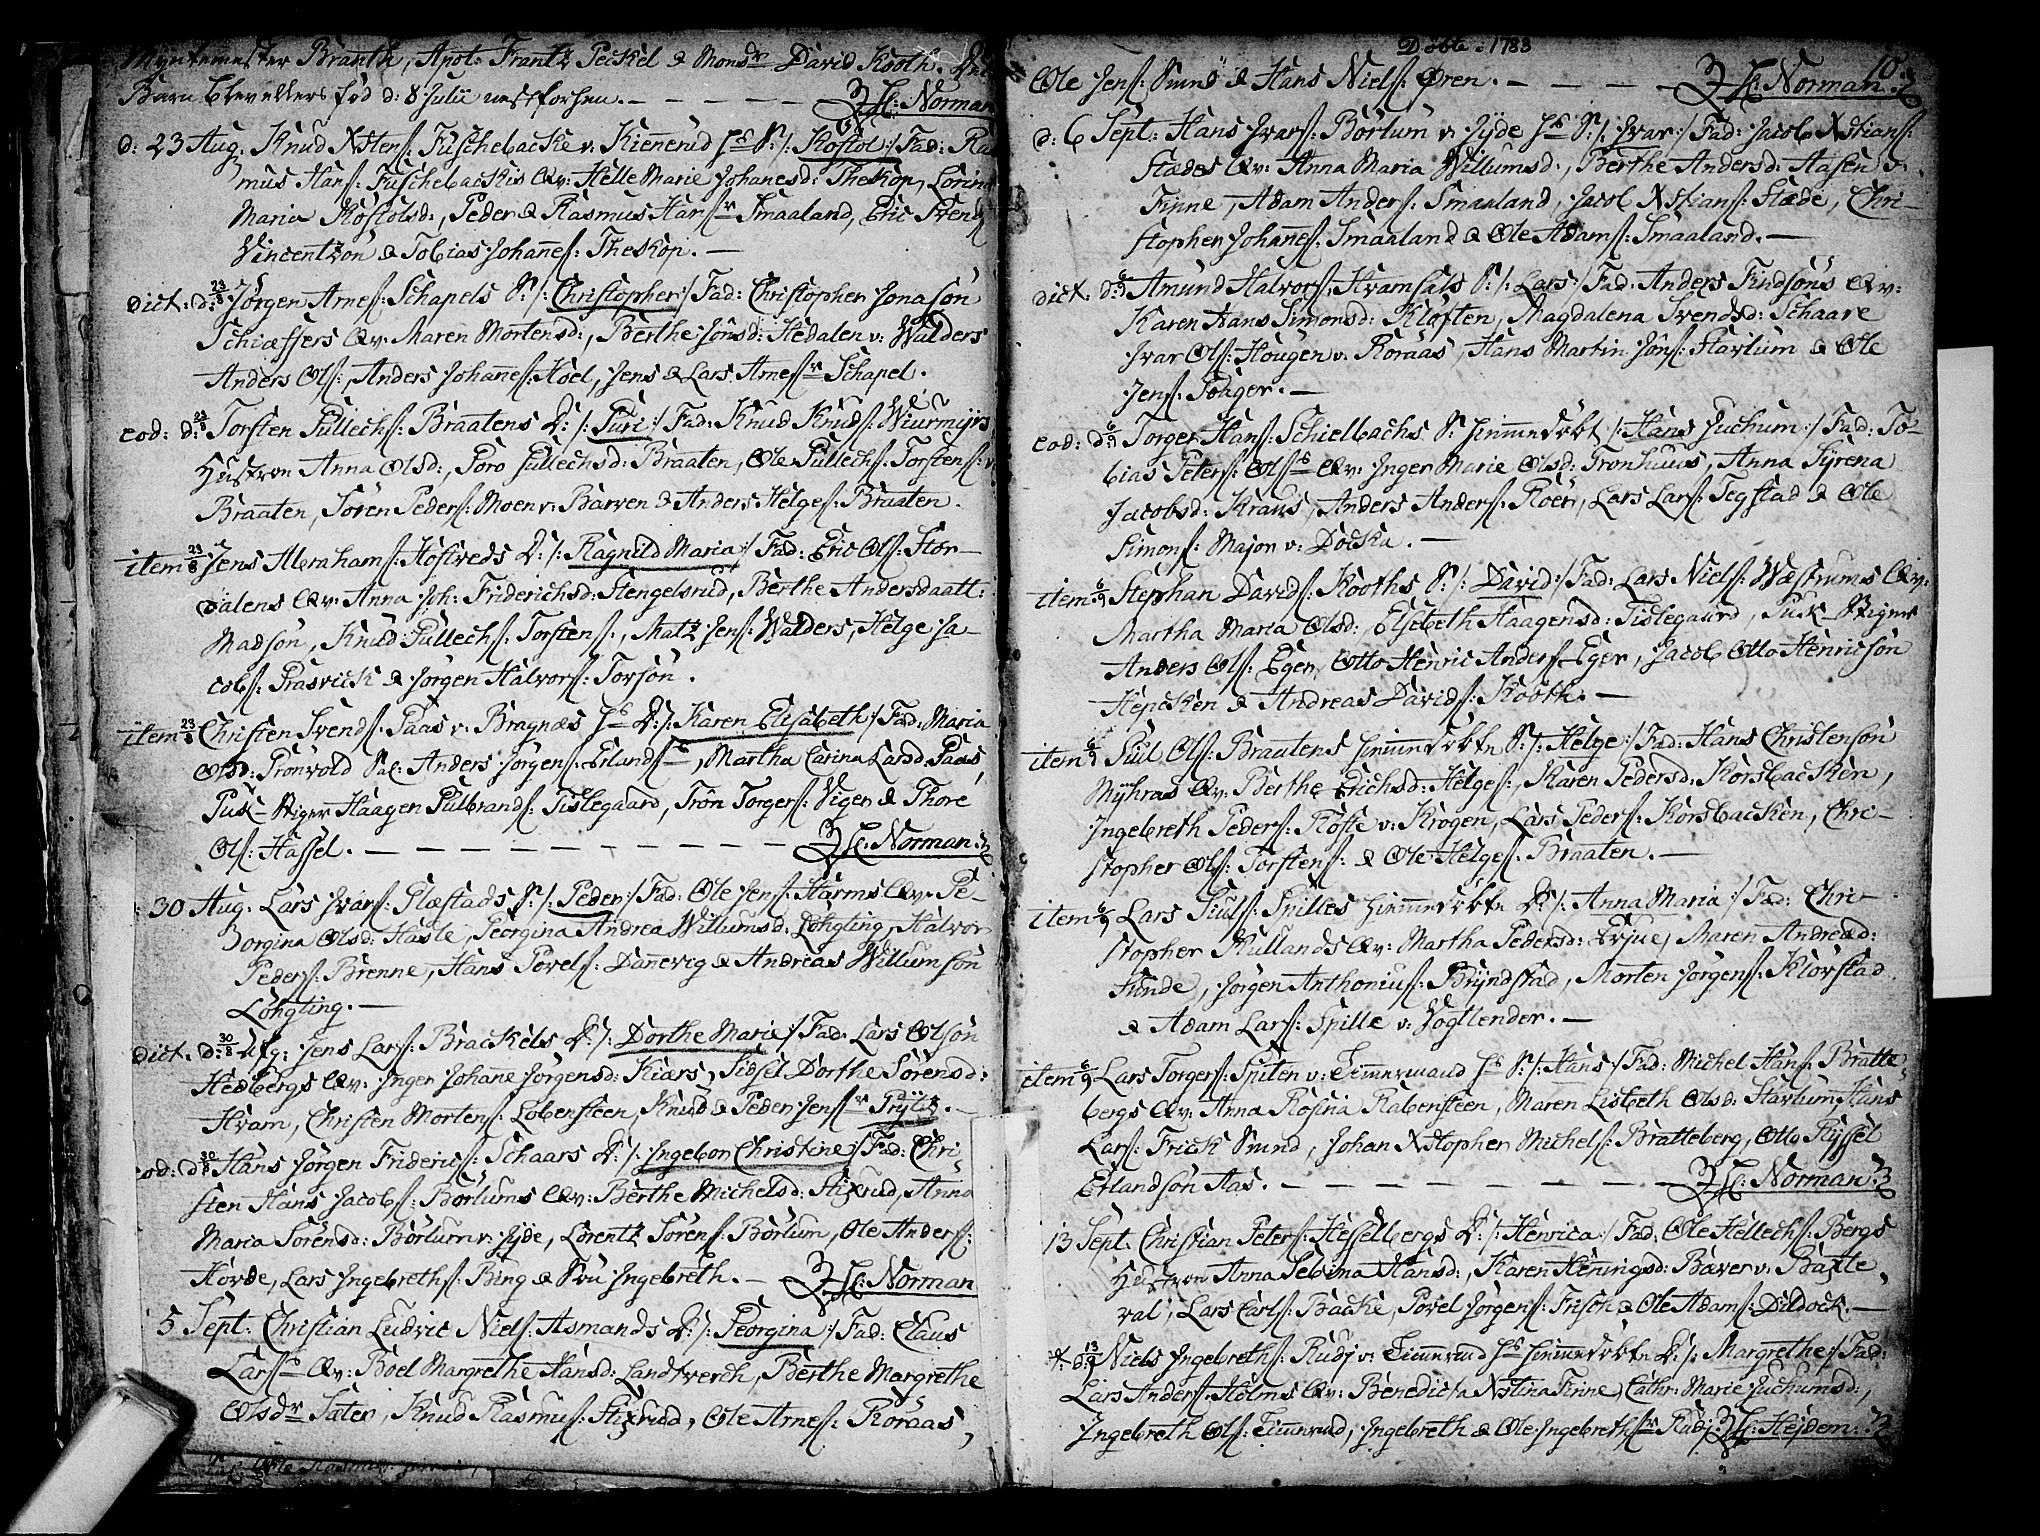 Myntemester Branth, Apot: Frantz Peckel & Monsr David Kooth.
Barn blev ellers fød d: 8 Julii nestforhen. — Hr: Norman
d: 23 Aug. Knud Xstens: Fuschebacke v: Kienerud Hs S: /: Kostol :/ Fad: Ras
mus Hans: Fuschebackis Qv: Helle Marie Johanesd: Theskop, Lorina
Maria Kostolsd:, Peder & Rasmus Hansr Smaaland, Eric Svends:
Vincentzon & Tobias Johanes: Theskop. —
Dict: d: 23/8 Jørgen Arnes: Schapels S: /: Christopher :/ Fad: Christopher Jonasøn
Schiæssers Qv: Maren Mortensd:, Berthe Jønsd: Hedalen v: Walders
Anders Ols:, Anders Johanes: Hoel, Jens & Lars Arnesr Schapel.
eod: d: 23/8 Torsten Gullechs: Braatens D: /: Guri :/ Fad: Knud Knuds: Wiurmyrs
Hustroe Anna Olsd:, Goro Gullechsd: Braaten, Ole Gullechs: Torstens: v:
Braaten, Søren Peders: Moen v: Barven & Anders Helges: Braaten.
item 23/8 Jens Abrahams: Hofsveds D: /: Ragnild Maria :/ Fad: Eric Ols: Stor-
dalens Qv: Anna Joh: Friderichsd: Hengelsrud, Berthe Andersdaatt:
Madsøn, Knud Gullechs: Torstens:, Matz Jens: Walders, Helge Ja-
cobs: Grasvick & Jørgen Halvors: Torsøn.
item 23/8 Christen Svends: Gaas v: Bragnæs Hs D: /: Karen Elisabeth :/ Fad: Maria
Olsd: Grønvold Sal: Anders Jørgens: Erlands:, Martha Carina Larsd: Gaas,
Puk-Stiger Haagen Gulbrands: Tislegaard, Trøn Torgers: Viger & Thore
Ols: Hassel. — Hr: Norman
30 Aug. Lars Ivars: Plæstads S: /: Peder :/ Fad: Ole Jens: Harms Qv: Ge-
orgina Olsd: Hasle, Georgina Andrea Willumsd: Løhgting, Halvor
Peders: Brenne, Hans Povels: Danevig & Andreas Willumsøn
Løhgting. —
Dict: d: 30/8 Jens Lars: Brackels D: /: Dorthe Marie :/ Fad: Lars Olsøn
Hedbergs Qv: Inger Johane Jørgensd: Kiærs, Sidsel Dorthe Sørensd:
Hvam, Christen Mortens: Lobensteen, Knud & Peder Jensr Prytz. —
eod: d: 30/8 Hans Jørgen Friderics: Schaars D: /: Ingebor Christine :/ Fad: Chri-
sten Hans Jacobs: Børlums Qv: Berthe Michelsd: Stixrud, Anna
Maria Sørensd: Børlum v: Jyde, Lorentz Sørens: Børlum, Ole Anders:
Hørde, Lars Ingebreths: Bing & Søn Ingebreth. — Hr: Norman
5 Sept: Christian Ludvic Niels: Asmands D: /: Georgina :/ Fad: Claus
Larss Qv: Boel Margrethe Hansd: Landtverch, Berthe Margrethe
Olsdr Sæter, Knud Rasmus: Stixrud, Ole Arnes: Roraas,
Døbte 1783
10.
Ole Jens: Smed & Hans Niels: Øren. — Hr: Norman
d: 6 Sept: Hans Ivars: Børlum v: Jyde Hs S: /: Ivar :/ Fad: Jacob Xstians:
Stædes Qv: Anna Maria Willumsd:, Berthe Andersd: Aasen v:
Finne, Adam Anders: Smaaland, Jacob Xstians: Stæde, Chri-
stopher Johanes: Smaaland & Ole Adams: Smaaland. —
Dict: d: 6/9 Amund Halvors: Hvamsals S: /: Lars :/ Fad: Anders Findsøns Qv:
Karen Hans Simonsd: Kløften, Magdalena Svendsd: Schaare
Ivar Ols: Hougen v: Roraas, Hans Martin Jøns: Starlum & Ole
Jens: Soager. —
eod: d: 6/9 Torger Hans: Schielbachs S: hjemmedøbt /: Hans Juchum :/ Fad: To-
bias Peters: Olss Qv: Inger Marie Olsd: Tronhuus, Anna Syrena
Jacobsd: Kraus, Anders Anders: Roen, Lars Lars: Tegstad & Ole
Simons: Major v: Docka. —
item 6/9 Stephan Davids: Kooths S: /: David :/ Fad: Lars Niels: Wæstrums Qv:
Martha Maria Olsd:, Elsebeth Haagensd: Tislegaard, Puk-Stiger
Anders Ols: Eger, Otto Henric Anders: Eger, Jacob Otto Henricsøn
Hepcken & Andreas Davids: Kooth. —
item 6/9 Siul Ols: Braatens hjemmedøbte S: /: Helge :/ Fad: Hans Christensøn
Myhras Qv: Berthe Erichsd: Helges:, Karen Pedersd: Korsbacken,
Ingebreth Peders: Røste v: Krogen, Lars Peders: Korsbacken, Chri-
stopher Ols: Torstens: & Ole Helges: Braaten. —
item 6/9 Lars Siuls: Spilles hjemmedøbte D: /: Anna Maria :/ Fad: Chri-
stopher Rullands Qv: Martha Pedersd: Evjue, Maren Andreæd:
Funde, Jørgen Anthonius: Bryndstad, Morten Jørgens: Klovstad
& Adam Lars: Spille v: Vogtlender. —
item 6/9 Lars Torgers: Spiten v: Simmerman Hs S: /: Hans :/ Fad: Michel Hans: Bratte-
bergs Qv: Anna Rosina Rabensteen, Maren Lisbeth Olsd: Starlum, Hans
Lars: Frick Smed, Johan Xstopher Michels: Bratteberg, Otto Ryssel
Erlandsøn Aas. — Hr: Norman
13 Sept: Christian Peters: Hesselbergs D: /: Henrica :/ Fad: Ole Hellechs: Bergs
Hustroe Anna Sebina Hansd:, Karen Heningsd: Bæver v: Baxte-
val, Lars Carls: Backe, Povel Jørgens: Frisøn & Ole Adams: Dildock. —
d: 13/9 Niels Ingebreths: Rudj v: Simerud Hs hjemmedøbte D: /: Margrethe :/ Fad:
Lars Anders: Holms Qv: Benedicta Xstina Finne, Cathr: Marie Juchumsd:,
Ingebreth Ols: Simerud, Ingebreth & Ole Ingebrethsr Rudj. Hr: Hejdem: